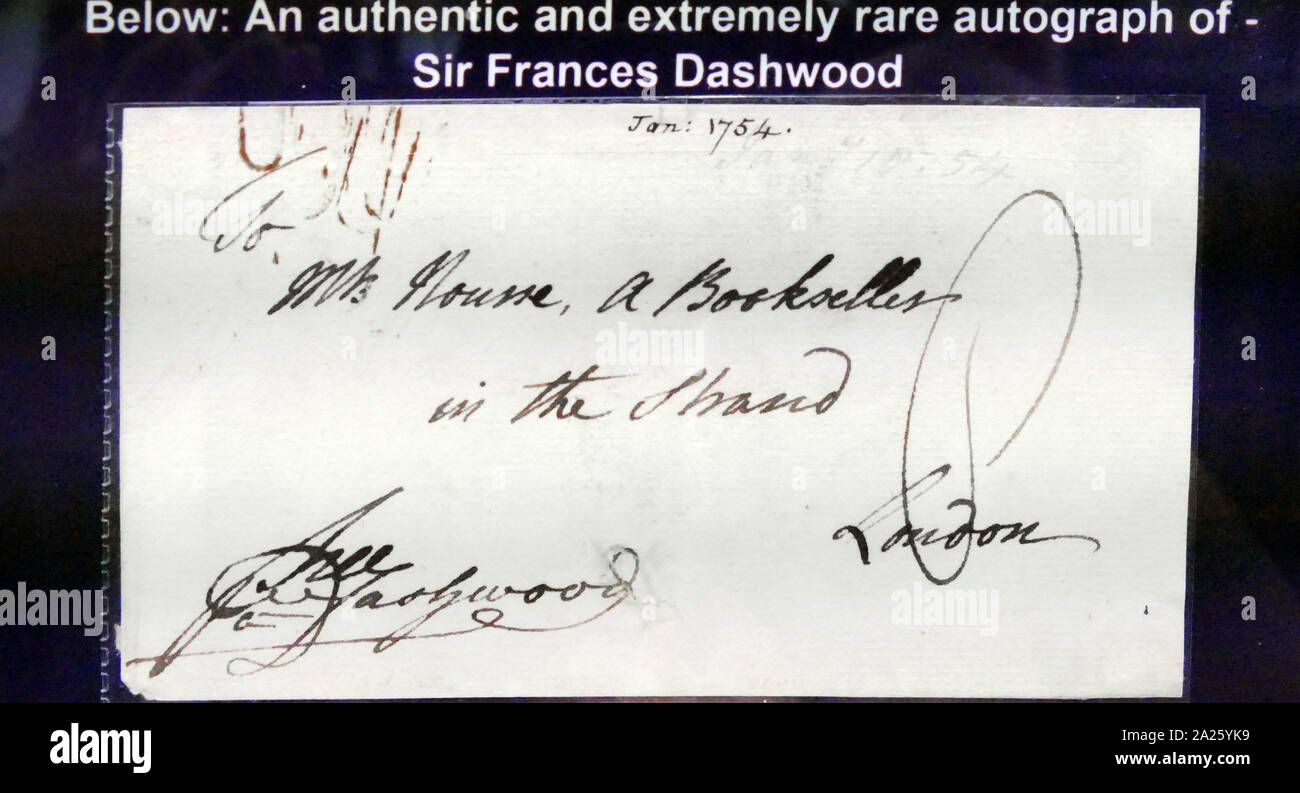 Below: An authentic and extremely rare autograph of -
Sir Frances Dashwood
Jan: 1754.
To
Mr Nourse, a Bookseller
in the Strand
London
free
Fra Dashwood
alamy
alamy
Image ID: 2A25YK9
www.alamy.com